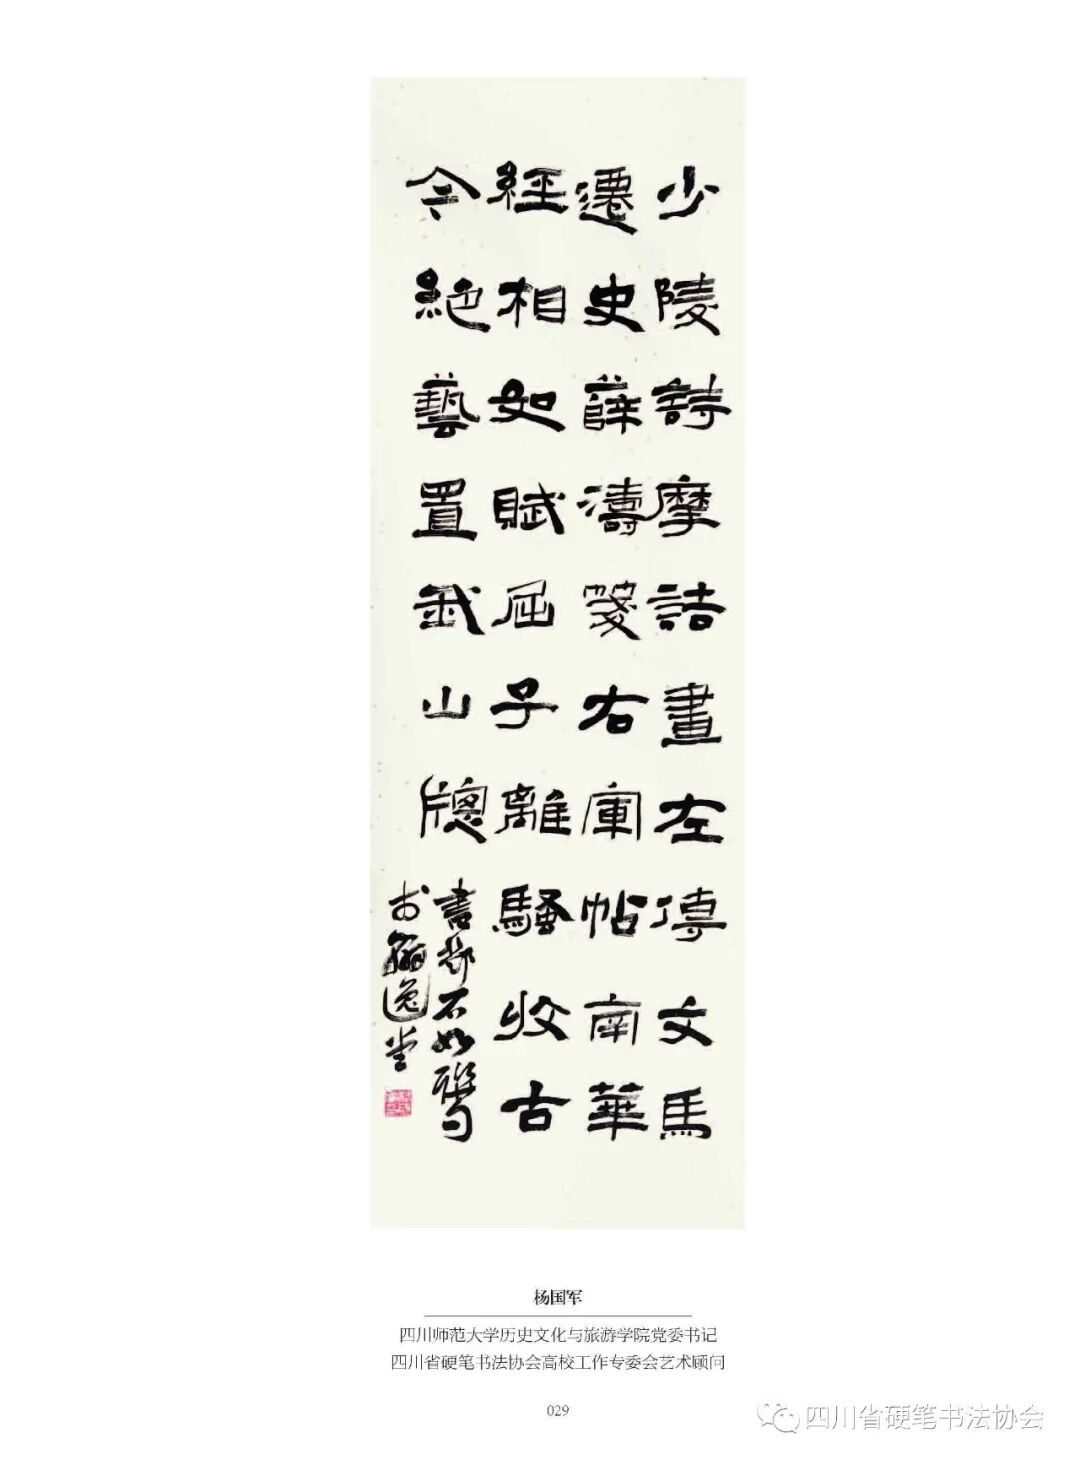 少陵詩摩詰畫左傳文馬
遷史薛濤箋右軍帖南華
經相如賦屈子離騷收古
今絕藝置我山牕
書鄧石如聯句
於翰逸堂
杨国军
四川师范大学历史文化与旅游学院党委书记
四川省硬笔书法协会高校工作专委会艺术顾问
029
四川省硬笔书法协会